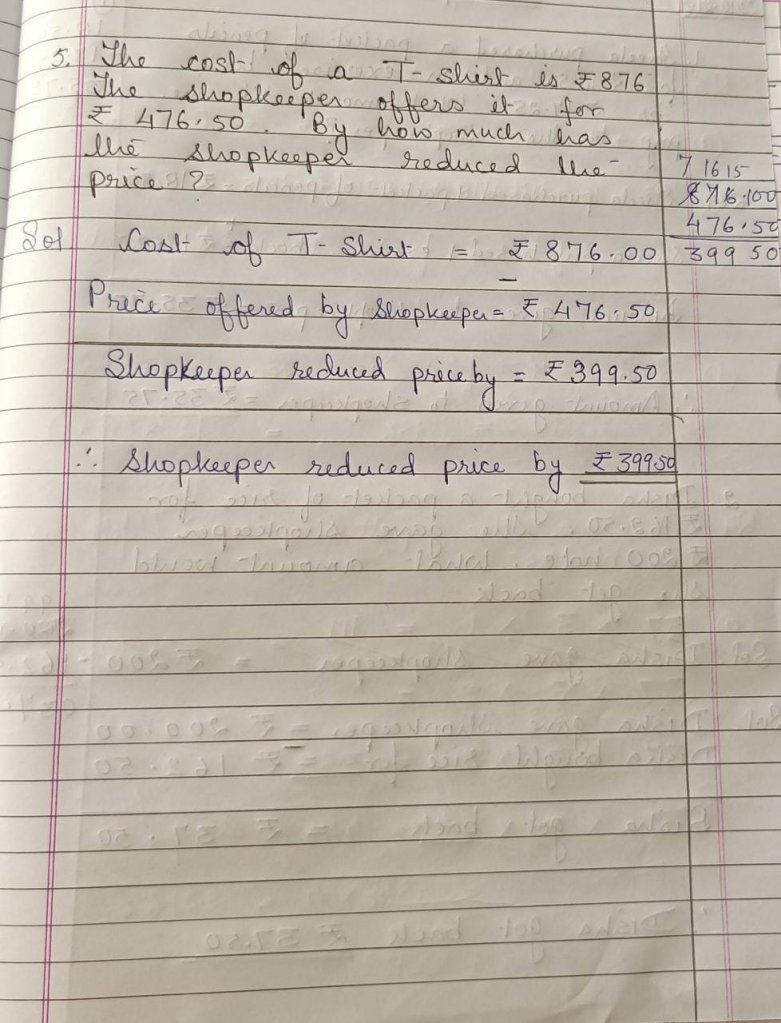 5. The cost of a T-Shirt is ₹876
The shopkeeper offers it for
₹ 476.50. By how much has
the shopkeeper reduced the
price?
7 16 15
876.100
476.50
399 50
Sol Cost of T-Shirt = ₹ 876.00
−
Price offered by Shopkeeper = ₹ 476.50
Shopkeeper reduced price by = ₹399.50
∴ Shopkeeper reduced price by ₹39950